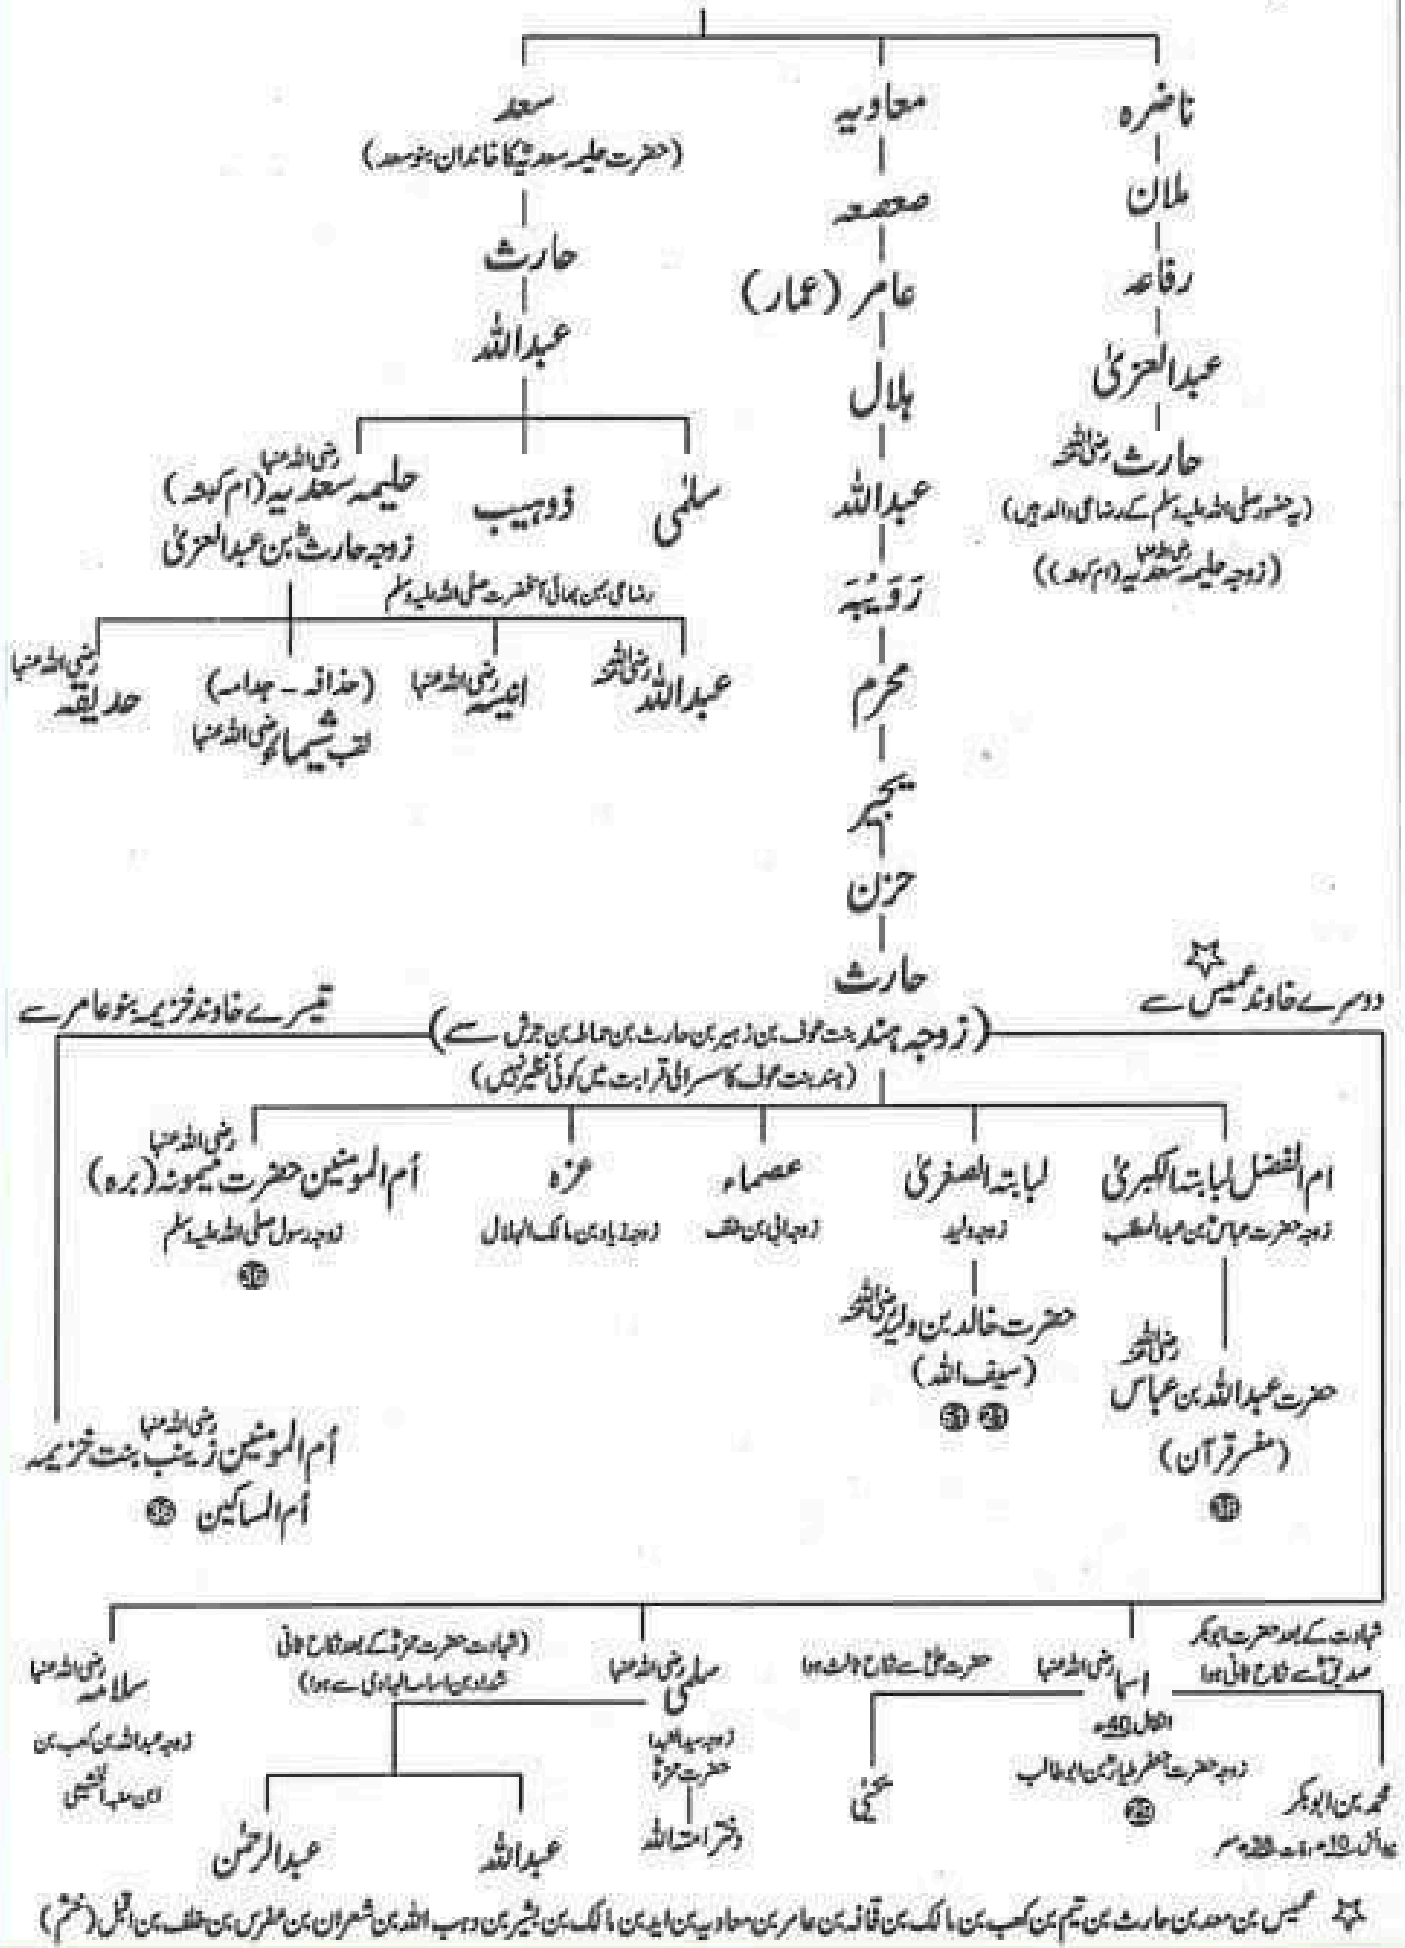 ناضرہ
ملان
رفاعہ
عبدالعزیٰ
حارث رضی اللہ عنہ
(یہ حضور صلی اللہ علیہ وسلم کے رضاعی والد ہیں)
(زوجہ حلیمہ سعدیہ رضی اللہ عنہا (ام کبشہ))
معاویہ
صعصعہ
عامر (عمار)
ہلال
عبداللہ
رَوَیْبَہ
محرم
بجیر
حزن
حارث
سعد
(حضرت حلیمہ سعدیہؓ کا خاندان بنو سعد)
حارث
عبداللہ
سلمٰی
ذوہیب
حلیمہ سعدیہ رضی اللہ عنہا (ام کبشہ)
زوجہ حارثؓ بن عبدالعزیٰ
رضاعی بہن بھائی آنحضرت صلی اللہ علیہ وسلم
عبداللہ رضی اللہ عنہ
انیسہ رضی اللہ عنہا
(حذافہ - جدامہ)
لقب شیماء رضی اللہ عنہا
حدیقہ رضی اللہ عنہا
دوسرے خاوند عمیس سے
(زوجہ ہند بنت عوف بن زہیر بن حارث بن حماطہ بن جرش سے)
تیسرے خاوند خزیمہ بنو عامر سے
(ہند بنت عوف کا سسرالی قرابت میں کوئی نظیر نہیں)
ام الفضل لبابتہ الکبریٰ
زوجہ حضرت عباسؓ بن عبدالمطلب
حضرت عبداللہ بن عباس رضی اللہ عنہ
(مفسر قرآن)
لبابتہ الصغریٰ
زوجہ ولید
حضرت خالد بن ولید رضی اللہ عنہ
(سیف اللہ)
عصماء
زوجہ ابی بن خلف
عزہ
زوجہ زیاد بن مالک الہلال
أم المومنین حضرت میمونہ رضی اللہ عنہا (برہ)
زوجہ رسول صلی اللہ علیہ وسلم
أم المومنین زینب رضی اللہ عنہا بنت خزیمہ
أم المساکین
شہادت کے بعد حضرت ابوبکر
صدیقؓ سے نکاح ثانی ہوا
اسماء رضی اللہ عنہا
حضرت علیؓ سے نکاح ثالث ہوا
انتقال 40ھ
زوجہ حضرت جعفر طیارؓ بن ابو طالب
محمد بن ابوبکر
یحیٰی
سلمی رضی اللہ عنہا
زوجہ سید الشہدا
حضرت حمزہؓ
دختر امتہ اللہ
(شہادت حضرت حمزہؓ کے بعد نکاح ثانی
شداد بن اسامہ الہادی سے ہوا)
عبداللہ
عبدالرحمٰن
سلامہ رضی اللہ عنہا
زوجہ عبداللہ بن کعب بن
☆ عمیس بن معد بن حارث بن تیم بن کعب بن مالک بن قحافہ بن عامر بن معاویہ بن زید بن مالک بن بشیر بن وہب اللہ بن شہران بن عفرس بن خلف بن اقبل (خثعم)